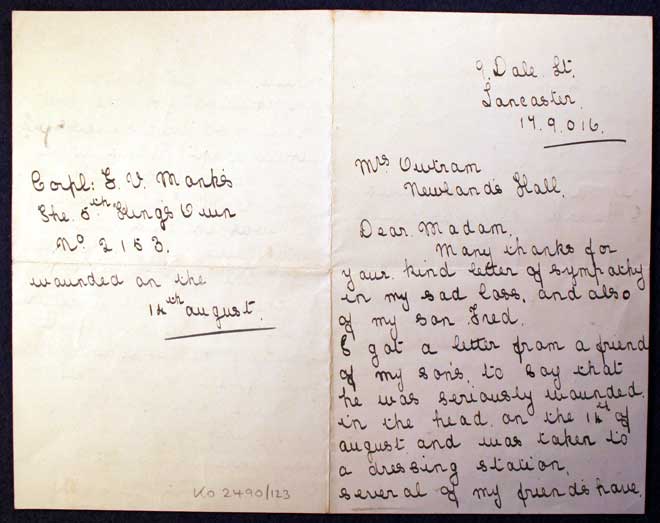 Corpl: F. V. Monks
The 5th King's Own
No 2153.
wounded on the
14th august.
KO 2490/123
9. Dale St.
Lancaster.
17.9.016.
Mrs Outram
Newlands Hall.
Dear Madam.
Many thanks for
your kind letter of sympathy
in my sad loss. and also
of my son Fred.
I got a letter from a friend
of my son's. to say that
he was seriously wounded.
in the head. on the 14th of
august and was taken to
a dressing station.
several of my friends have.